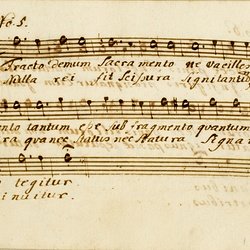 No 5.
Fracto demum Sacramento ne vacille
Nulla rei fit Scissura Signi tantu
ento tantum esse sub fragmento quantum
ra qua nec status nec Statura Signa
legitur
inuitur.